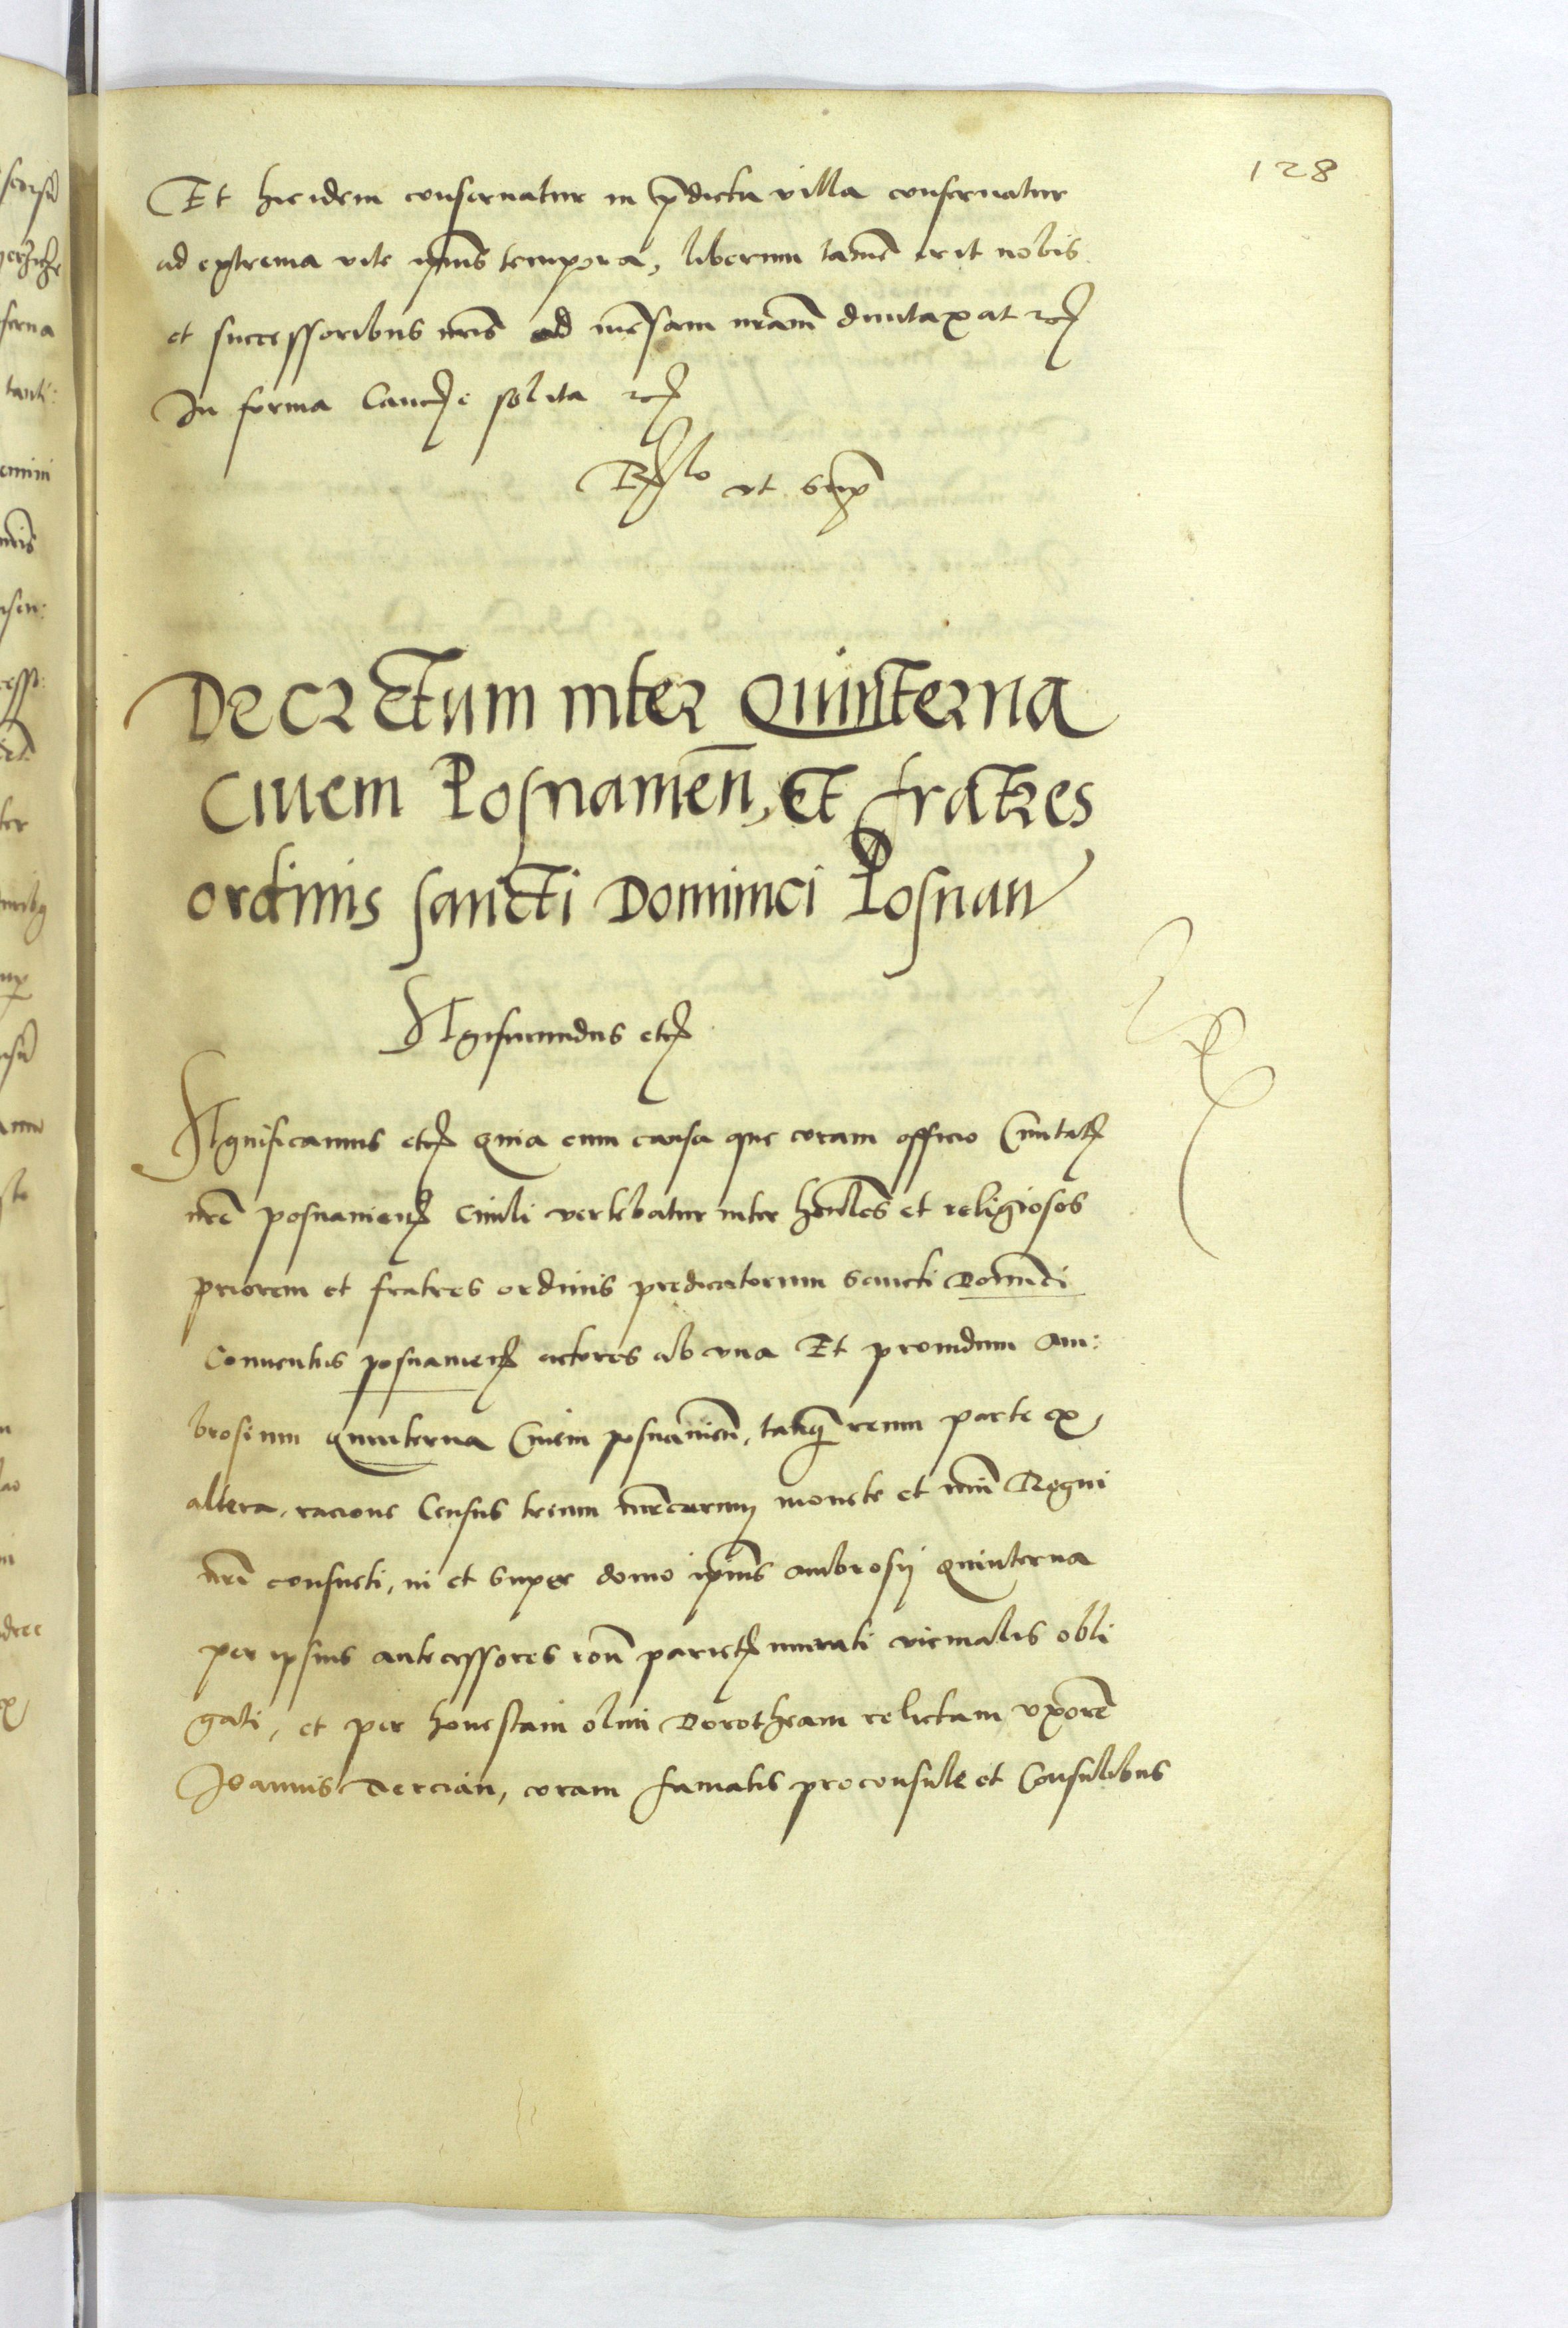 128
Et hic idem conservatur in p̄dicta villa conservatur
ad extrema vite ipīus tempora, liberum tamē erit nobis
et successoribus nr̄is ad mēsam nr̄am duntaxat etc
In forma Canc̄e solita etc
Rlo ut sup̄
Decretum inter Quinterna
Civem Posnanien̄, et fratres
ordinis sancti Dominici Posnan
Sigismundus etc
Significamus etc quia cum causa que coram officio Civitat̄
nr̄e posnanien̄ Civili vertebatur inter hon̄les et religiosos
priorem et fratres ordinis predicatorum sancti Domīci
Conventus posnanien̄ actores ab una Et providum Am:
brosium quinterna Civem posnanien̄, tanq̄ reum parte ex
altera, racione Census trium mr̄carum monete et nūi Regni
nr̄i consueti, in et super domo ipīus ambrosij quinterna
per ipsius antecessores rōn̄ pariet̄ murati vicinalis obli
gati, et per honestam olim Dorotheam relictam uxorē
Joannis Dercian, coram famatis proconsule et Consulibus